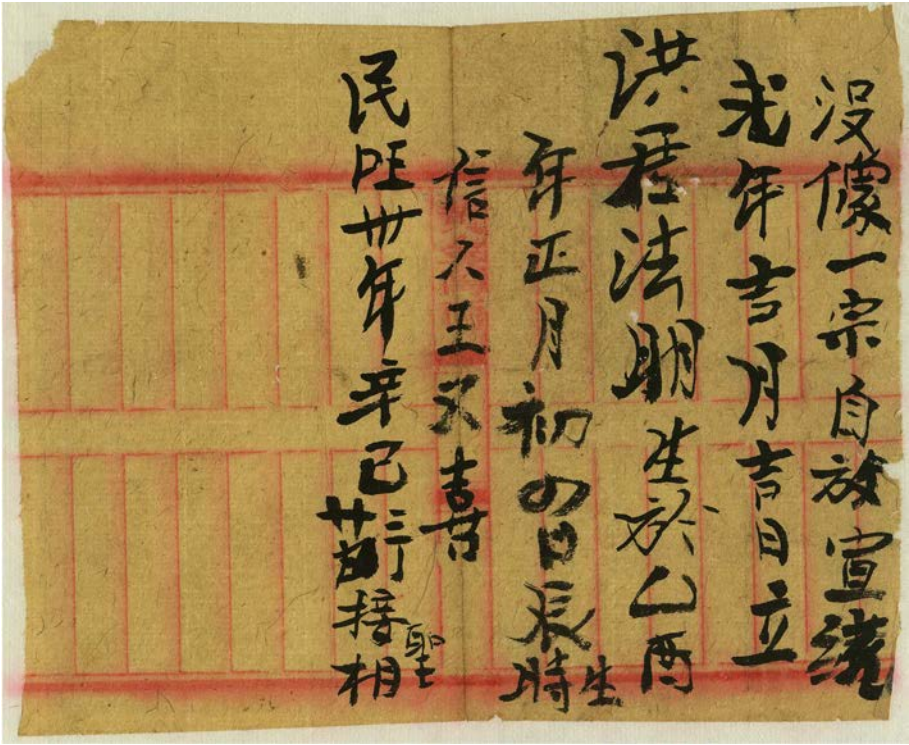 没一宗自放宣
光年吉月吉日立
洪君法明生於乙酉
年正月初四日辰時生
信人王又喜
民旺卅年辛巳接聖相